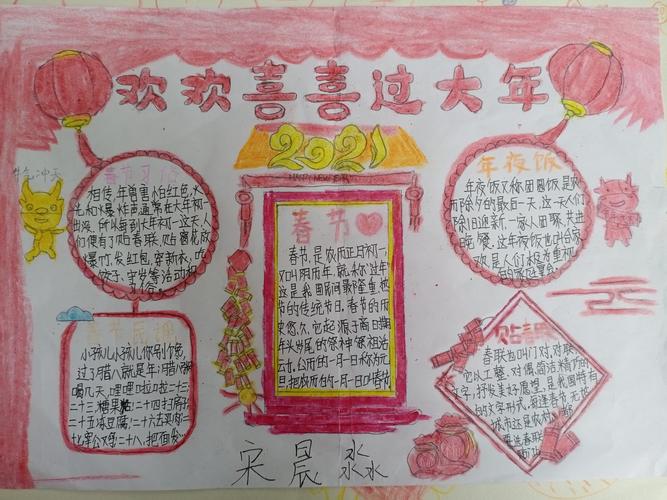 欢欢喜喜过大年
2021
HAPPY NEW YEAR
牛气冲天
春节习俗
相传,年兽害怕红色,火
光和爆炸声,通常在大年初一
出没,所以每到大年初一这天,人
们便有了贴春联、贴窗花、放
爆竹、发红包、穿新衣、吃
饺子、守岁等活动和
习俗
春节
春节,是农历正月初一,
又叫阴历年,就称"过年"
这是我国民间最隆重、热
节的传统节日。春节的历史
悠久,它起源于商日期
年头岁尾的祭神祭祖活
云力,公历的一月一日称为元
旦,把农历的一月一日叫春节
年夜饭
年夜饭又称团圆饭是农
历除夕的最后一天,这一天人们
除旧迎新,一家人团聚,共进
晚餐,这年夜饭也叫合家
欢,是人们极为重视
的家庭宴会
春节民谣
小孩儿小孩儿你别馋,
过了腊八就是年:腊八粥
喝几天,哩哩啦啦二十三,
二十三,糖果黏;二十四扫房子
二十五冻豆腐;二十六去买肉;二
十七宰公鸡;二十八,把面发
贴春联
春联也叫门对,对联
它以工整、对偶、简洁精巧的
文字,抒发美好愿望,是我国特有
的文学形式,每逢春节无论
城市还是农村
要选春联
宋晨淼